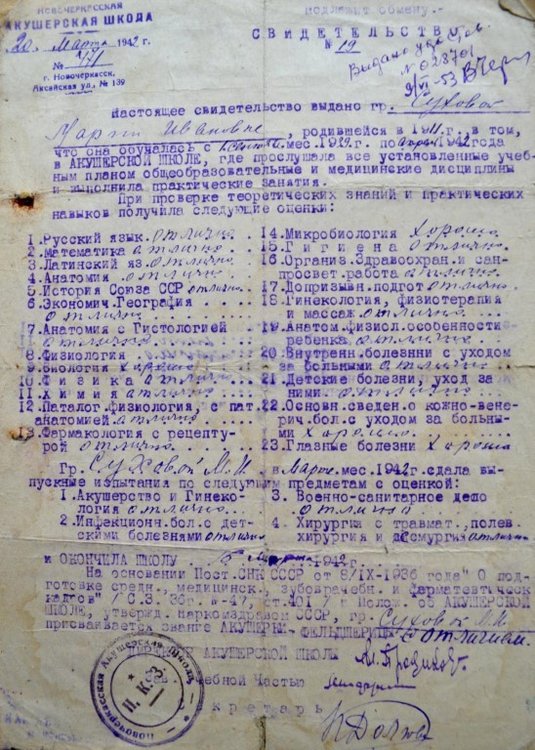 НОВОЧЕРКАССКАЯ
АКУШЕРСКАЯ ШКОЛА
20 марта 1942 г.
г. Новочеркасск,
Аксайская ул., № 139
подлежит обмену.-
СВИДЕТЕЛЬСТВО
№ 19
Выдано удост.
№ 028701
9/VI-53
Настоящее свидетельство выдано гр. Суховой
Марии Ивановне, родившейся в 1911 г., в том,
что она обучалась с мес. 19 г. по 1942 года
в АКУШЕРСКОЙ ШКОЛЕ, где прослушала все установленные учеб-
ным планом общеобразовательные и медицинские дисциплины
и выполнила практические занятия.
При проверке теоретических знаний и практических
навыков получила следующие оценки:
1. Русский язык. отлично
2. Математика отлично
3. Латинский яз. отлично
4. Анатомия отлично
5. История Союза ССР отлично
6. Экономич. География
отлично
7. Анатомия с Гистологией
отлично
8. Физиология
9. Биология хорошо
10. Физика отлично
11. Химия отлично
12. Паталог. физиология, с пат.
анатомией. отлично
13. Фармакология с рецепту-
рой отлично
14. Микробиология хорошо
15. Гигиена отлично
16. Организ. Здравоохран. и сан-
просвет. работа отлично
17. Допризывн. подгот отлично.
18. Гинекология, физиотерапия
и массаж. отлично
19. Анатом. физиол. особенности
ребенка отлично
20. Внутренн. болезнни с уходом
за больными отлично
21. Детские болезни, уход за
ними. отлично
22. Основн. сведен. о кожно-вене-
рич. бол. с уходом за больны-
ми хорошо
23. Глазные болезни хорошо
Гр. Суховой М.И. в марте мес. 1942 г. сдала вы-
пускные испытания по следующим предметам с оценкой:
1. Акушерство и Гинеко-
логия отлично
2. Инфекционн. бол. с дет-
скими болезнями отлично
3. Военно-санитарное дело
отлично
4 Хирургия с травмат., полев.
хирургия и десмургия отлично
и ОКОНЧИЛА ШКОЛУ марта 1942 г.
На основании Пост. СНК СССР от 8/IX-1936 года "О под-
готовке средн., медицинск., зубоврачебн. и фармацевтическ.
кадров" /С.З. 36г. N-47, ст. 401/ и Полож. об АКУШЕРСКОЙ
ШКОЛЕ, утвержд. наркомздравом СССР, гр. Суховой М.И.
присваивается звание АКУШЕРКИ-ФЕЛЬДШЕРИЦЫ с отличием.
ДИРЕКТОР АКУШЕРСКОЙ ШКОЛЫ
Зав. Учебной Частью
Секретарь
Новочеркасская Акушерская Школа
Н.К.З.